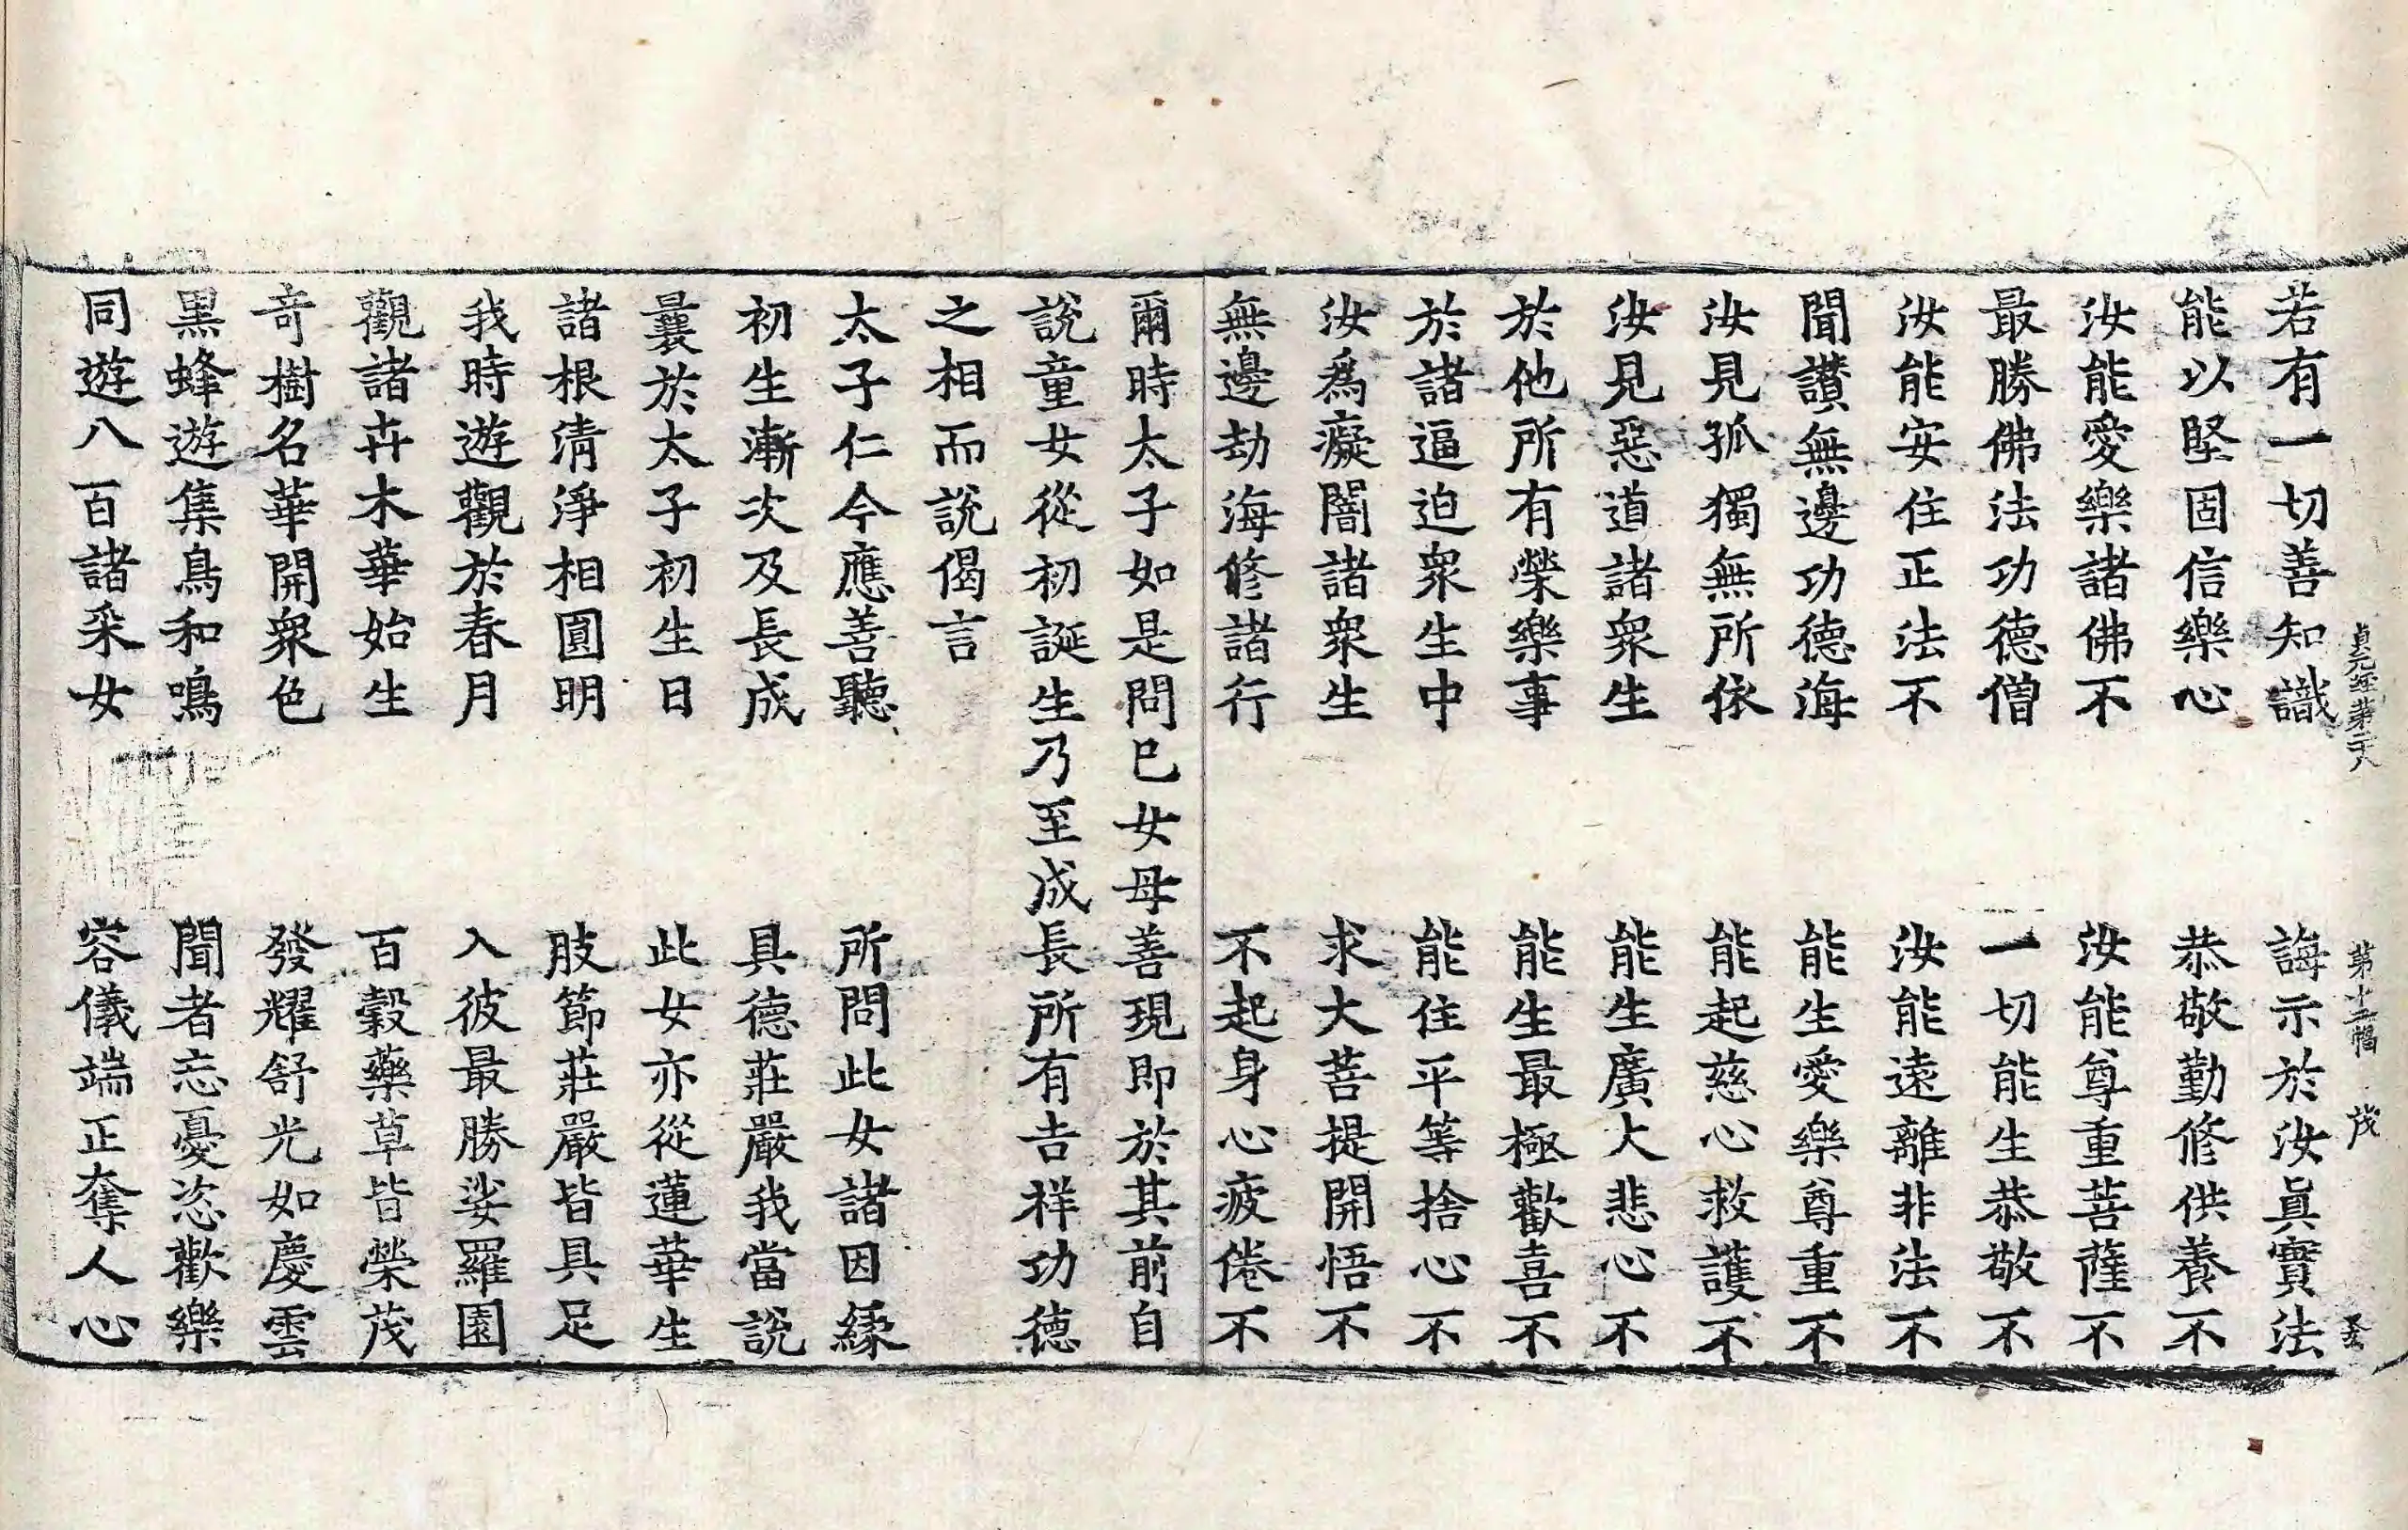 貞元經第二十八 第十二幅 茂
若有一切善知識 誨示於汝眞實法
能以堅固信樂心 恭敬勤修供養不
汝能愛樂諸佛不 汝能尊重菩薩不
最勝佛法功德僧 一切能生恭敬不
汝能安住正法不 汝能遠離非法不
聞讃無邊功德海 能生愛樂尊重不
汝見孤獨無所依 能起慈心救護不
汝見惡道諸衆生 能生廣大悲心不
於他所有榮樂事 能生最極歡喜不
於諸逼迫衆生中 能住平等捨心不
汝爲癡闇諸衆生 求大菩提開悟不
無邊劫海修諸行 不起身心疲倦不
爾時太子如是問巳女母善現即於其前自
說童女從初誕生乃至成長所有吉祥功德
之相而說偈言
太子仁今應善聽 所問此女諸因緣
初生漸次及長成 具德莊嚴我當說
曩於太子初生日 此女亦從蓮華生
諸根淸淨相圓明 肢節莊嚴皆具足
我時遊觀於春月 入彼最勝娑羅園
觀諸卉木華始生 百穀藥草皆榮茂
奇樹名華開衆色 發耀舒光如慶雲
黑蜂遊集鳥和鳴 聞者忘憂恣歡樂
同遊八百諸采女 容儀端正奪人心